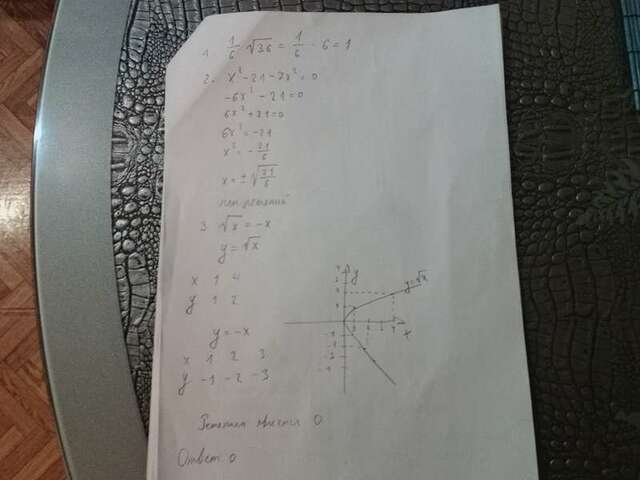 1. 1/6 · √36 = 1/6 · 6 = 1
2. x² - 21 - 7x² = 0
-6x² - 21 = 0
6x² + 21 = 0
6x² = -21
x² = -21/6
x = ±√21/6
нет решений
3. √x = -x
y = √x
x 1 4
y 1 2
y = -x
x 1 2 3
y -1 -2 -3
y
y=√x
x
Решением является 0
Ответ 0